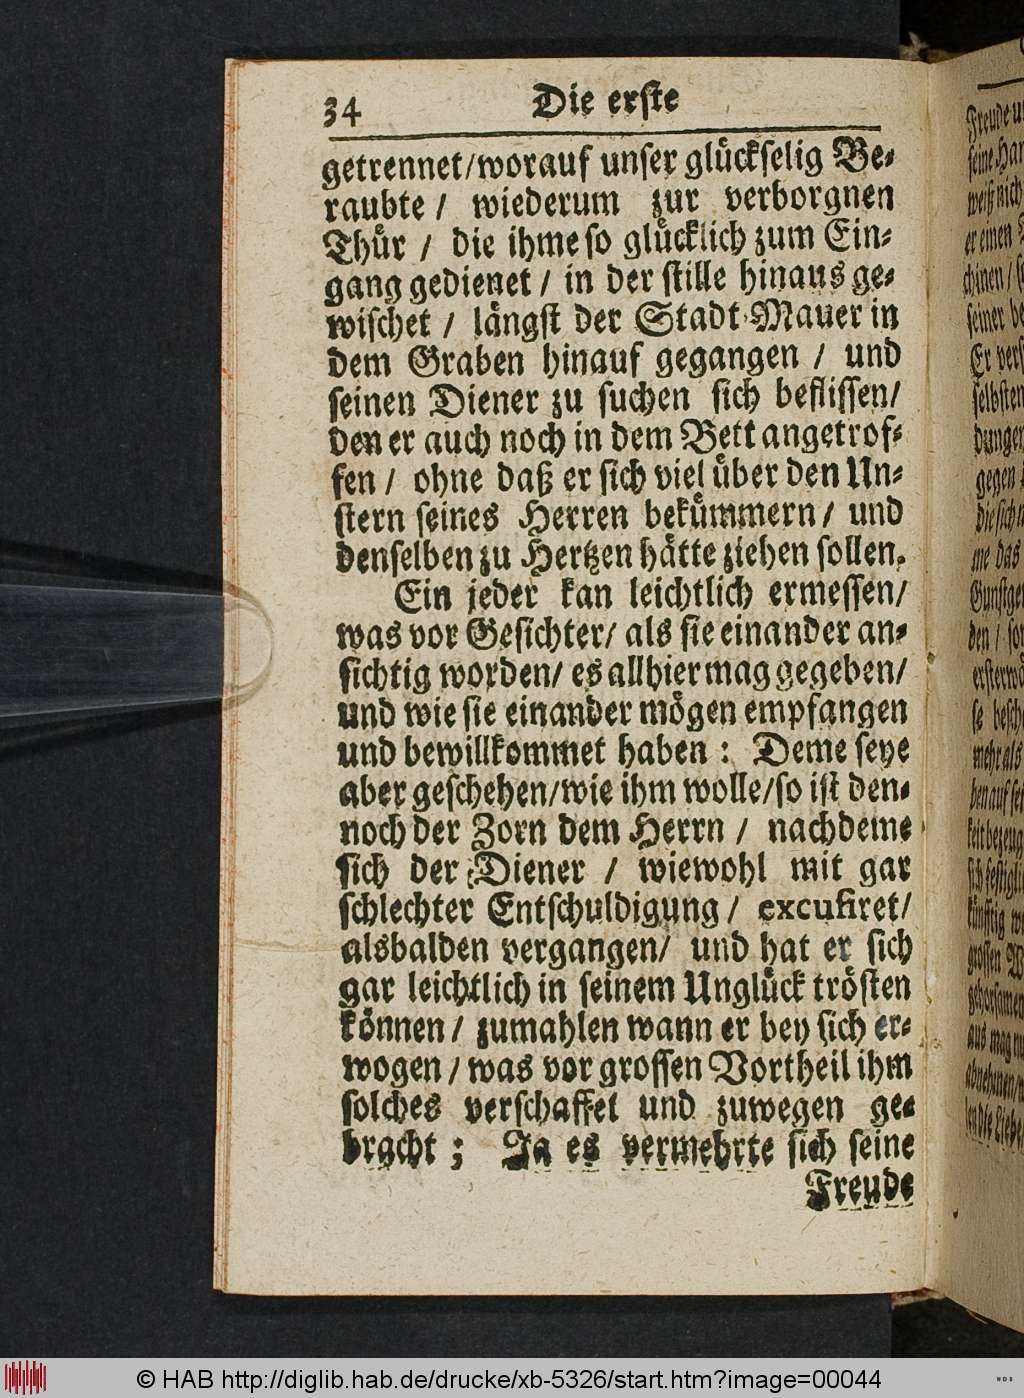 34 Die erste
getrennet/worauf unser glückselig Be-
raubte / wiederum zur verborgnen
Thür / die ihme so glücklich zum Ein-
gang gedienet / in der stille hinaus ge-
wischet / längst der Stadt-Mauer in
dem Graben hinauf gegangen / und
seinen Diener zu suchen sich beflissen/
den er auch noch in dem Bett angetrof-
fen / ohne daß er sich viel über den Un-
stern seines Herren bekümmern/ und
denselben zu Hertzen hätte ziehen sollen.
Ein jeder kan leichtlich ermessen/
was vor Gesichter/ als sie einander an-
sichtig worden/ es allhier mag gegeben/
und wie sie einander mögen empfangen
und bewillkommet haben : Deme seye
aber geschehen/wie ihm wolle/so ist den-
noch der Zorn dem Herrn / nachdeme
sich der Diener / wiewohl mit gar
schlechter Entschuldigung/ excusiret/
alsbalden vergangen/ und hat er sich
gar leichtlich in seinem Unglück trösten
können / zumahlen wann er bey sich er-
wogen / was vor grossen Vortheil ihm
solches verschaffet und zuwegen ge-
bracht ; Ja es vermehrte sich seine
Freude
© HAB http://diglib.hab.de/drucke/xb-5326/start.htm?image=00044